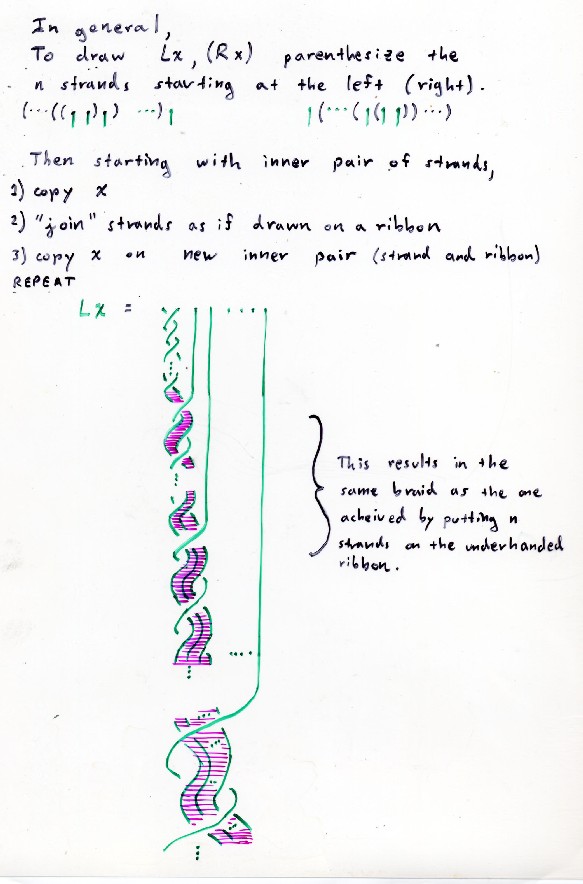 In general,
To draw Lx, (Rx) parenthesize the
n strands starting at the left (right).
(···((| |) |) ···) | | (··· ( | ( | |)) ···)
Then starting with inner pair of strands,
1) copy x
2) "join" strands as if drawn on a ribbon
3) copy x on new inner pair (strand and ribbon)
REPEAT
Lx =
This results in the
same braid as the one
acheived by putting n
strands on the underhanded
ribbon.